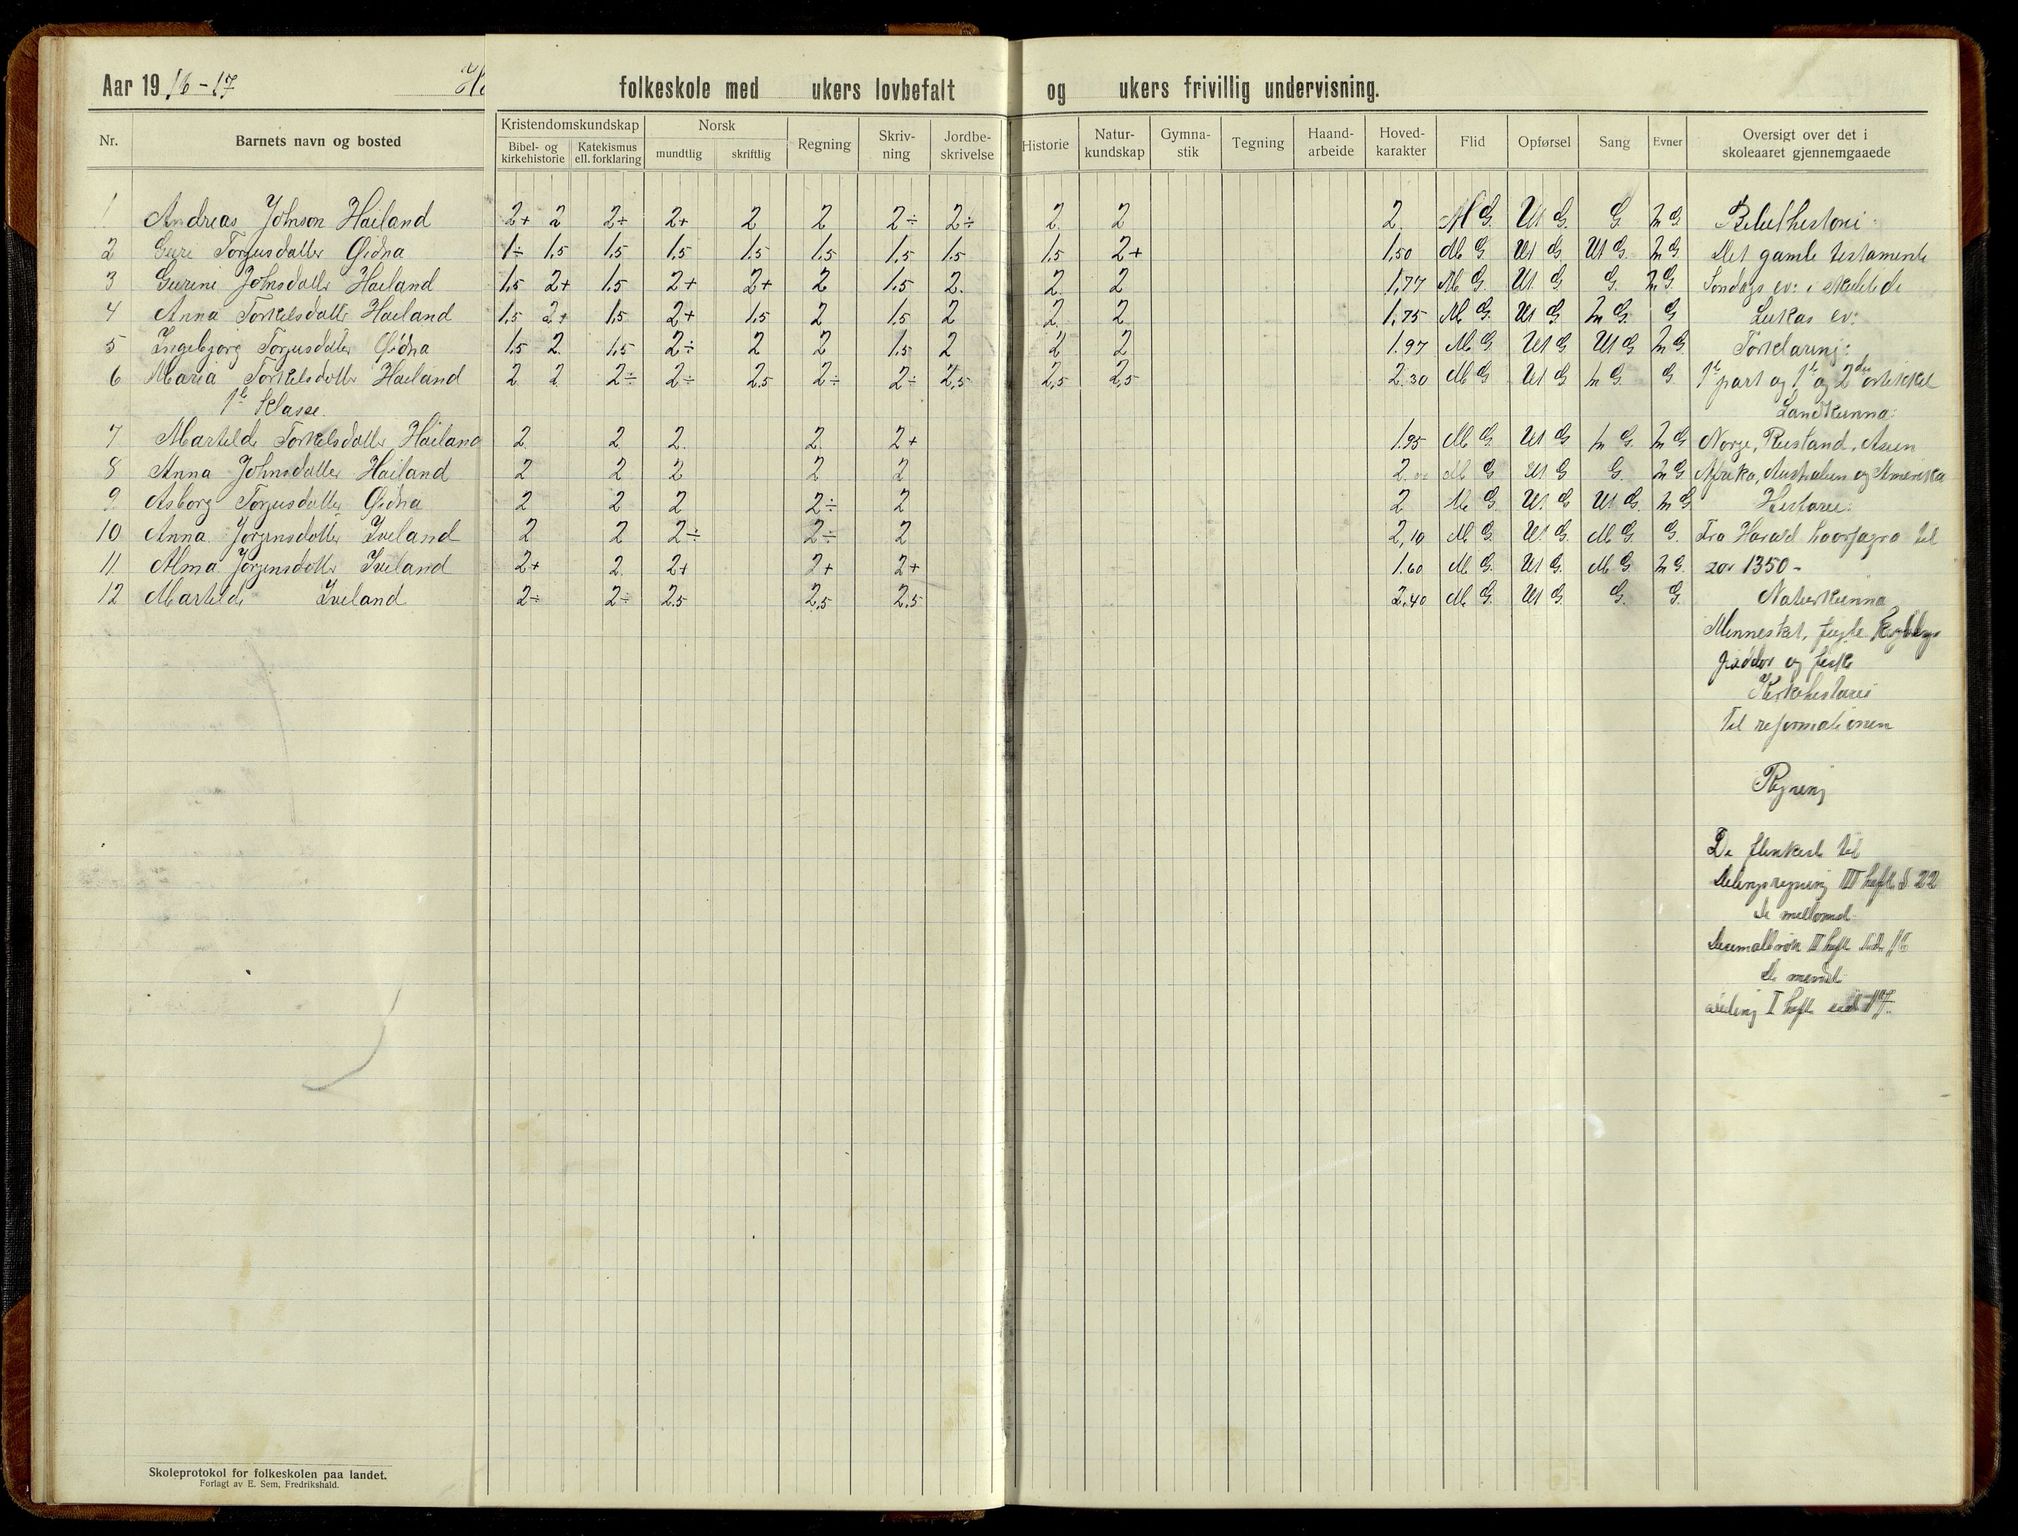 Aar 19 16-17 folkeskole med ukers lovbefalt og ukers frivillig undervisning.
Nr. Barnets navn og bosted Kristendomskundskap Bibel- og kirkehistorie Katekismus ell. forklaring Norsk mundtlig skriftlig Regning Skrivning Jordbeskrivelse Historie Naturkundskap Gymnastik Tegning Haandarbeide Hovedkarakter Flid Opførsel Sang Evner Oversigt over det i skoleaaret gjennemgaaede
1 Andreas Johnson Hailand 2+ 2 2÷ 2+ 2 2 2÷ 2÷ 2 2 2 M G. Ut G. G M G Bibelhistorie:
2 Guri Torjusdatter Øidna 1÷ 1,5 1,5 1,5 1,5 1,5 1,5 1,5 1,5 2+ 1,50 M G Ut G Ut G. M G. Det gamle testamente
3 Gurine Johnsdatter Hailand 1,5 2+ 1,5 2+ 2+ 2 1,5 2. 2 2 1,77 M G. Ut G. G. M G. Søndags ev: i
4 Anna Torkelsdatter Hailand 1,5 2+ 1,5 2+ 1,5 2 1,5 2 2 2 1,75 M G Ut G M G. G Lukas ev:
5 Ingebjorg Torjusdatter Øidna 1,5 2 1,5 2÷ 2 2 1,5 2 2 2 1,97 M G Ut G Ut G M G. Forklaring:
6 Maria Torkelsdatter Hailand 2 2 2÷ 2÷ 2,5 2÷ 2÷ 2,5 2,5 2,5 2,30 M G Ut G M G. G 1ste part og 1ste og 2den artikkel
1ste klasse. Landkunna:
7 Martide Torkelsdatter Hailand 2 2 2 2 2+ 1,95 M G Ut G M G. M G Norge, Rusland, Asien
8 Anna Johnsdatter Hailand 2 2 2 2 2 2 M G Ut G G. M G Afrika, Australien og Amerika
9 Asborg Torjusdatter Øidna 2 2 2 2÷ 2 2 M G Ut G Ut G. M G Historie:
10 Anna Jørgensdatter Iveland 2 2 2÷ 2÷ 2 2,10 M G. Ut G. M G G. Fra Harald haarfagra til
11 Alma Jørgensdatter Iveland 2+ 2 2+ 2+ 2+ 1,60 M G. Ut G. M G M G. 1350-
12 Iveland 2÷ 2÷ 2,5 2,5 2,5 2,40 M G. Ut G. G. G. Naturkunna
Mennesket, fugle
og fiske
Kirkehistorie
Til reformationen
Regning
De flinkeste til
Delingsregning III hefte § 22
De
II hefte
De
I hefte
Skoleprotokol for folkeskolen paa landet.
Forlagt av E. Sem, Fredrikshald.